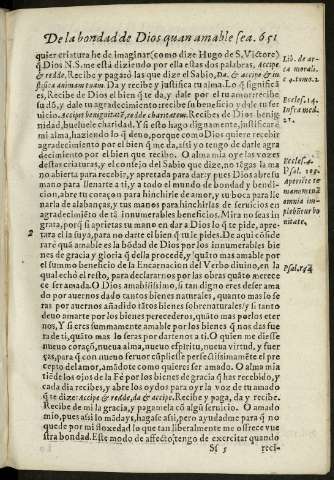 De la bondad de Dios quan amable sea. 651
quier criatura he de imaginar (como dize Hugo de S. Victore)
q̃ Dios N. S. me està diziendo por ella estas dos palabras, Accipe,
& redde. Recibe y paga: ò las que dize el Sabio, Da, & accipe & iu
stifica animam tuam. Da y recibe y justifica tu alma. Lo q̃ signifi
ca es, Recibe de Dios el bien que te da, y dale por el tu amor: recibe
su dõ, y dale tu agradecimiento: recibe su beneficio y dale tu ser
uicio. Accipe benignitatẽ, redde charitatem. Recibes de Dios benig
nidad, bueluele charidad. Y si esto hago dignamente, justificarè
mi alma, haziendo lo q̃ deuo, porque como Dios quiere recibir
agradecimiento por el bien que me da, assi yo tengo de darle agra
decimiento por el bien que recibo. O alma mia oye las vozes
destas criaturas, y el consejo del Sabio que dize, no tẽgas la ma
no abierta para recebir, y apretada para dar: y pues Dios abre su
mano para llenarte a ti, y a todo el mundo de bondad y bendi-
cion, abre tu coraçon para hinchirle de amor, y tu boca para lle
narla de alabanças, y tus manos para hinchirlas de seruicios en
agradecimiẽto de tã innumerables beneficios. Mira no seas in
grata, porq̃ si aprietas tu mano en dar a Dios lo q̃ te pide, apre-
tara el la suya, para no darte el bien q̃ tu le pides. De aqui cõside
rarè quã amable es la bõdad de Dios por los innumerables bie
nes de gracia y gloria q̃ della procedẽ, y quãto mas amable por
el summo beneficio de la Encarnacion del Verbo diuino, en la
qual echò el resto, para declararnos por las obras quãto merece
ser amada. O Dios amabilissimo, si tan digno eres de ser ama
do por auernos dado tantos bienes naturales, quanto mas lo se
ras por auernos añadido tãtos bienes sobrenaturales? y si tanto
deuo amarte por los bienes perecederos, quãto mas por los eter
nos, Y si eres summamente amable por los bienes q̃ nos das fue
ra de ti, quãto mas lo seras por darte nos a ti? O quien me diesse
nueuo coraçõ, nueua alma, nueuo espiritu, nueua virtud, y fuer
ças, para q̃ con nueuo seruor cũpliesse perfectissimamẽte el pre
cepto del amor, amãdote como quieres ser amado. O alma mia
tiẽde los ojos de la Fè por los bienes de gracia q̃ has recebido, y
cada dia recibes, y abre los oydos para oyr la voz de tu amado
q̃ te dize: Accipe & redde, da & accipe. Recibe y paga, da y recibe.
Recibe de mi la gracia, y pagamela cõ algũ seruicio. O amado
mio, pues assi lo mãdays, hagase assi, pero ayudadme para q̃ no
quede por mi floxedad lo que tan liberalmente me ofrece vue
stra bondad. Este modo de affecto, tengo de exercitar quando
Sf 5 reci-
Lib. de ar
ca morali.
c. 4. tomo. 2.
Eccles. 14.
Infra med.
21.
Eccles. 4.
Psal. 103.
Aperiẽte te
manum tuã
omnia im-
plebũtur bo
nitate.
2